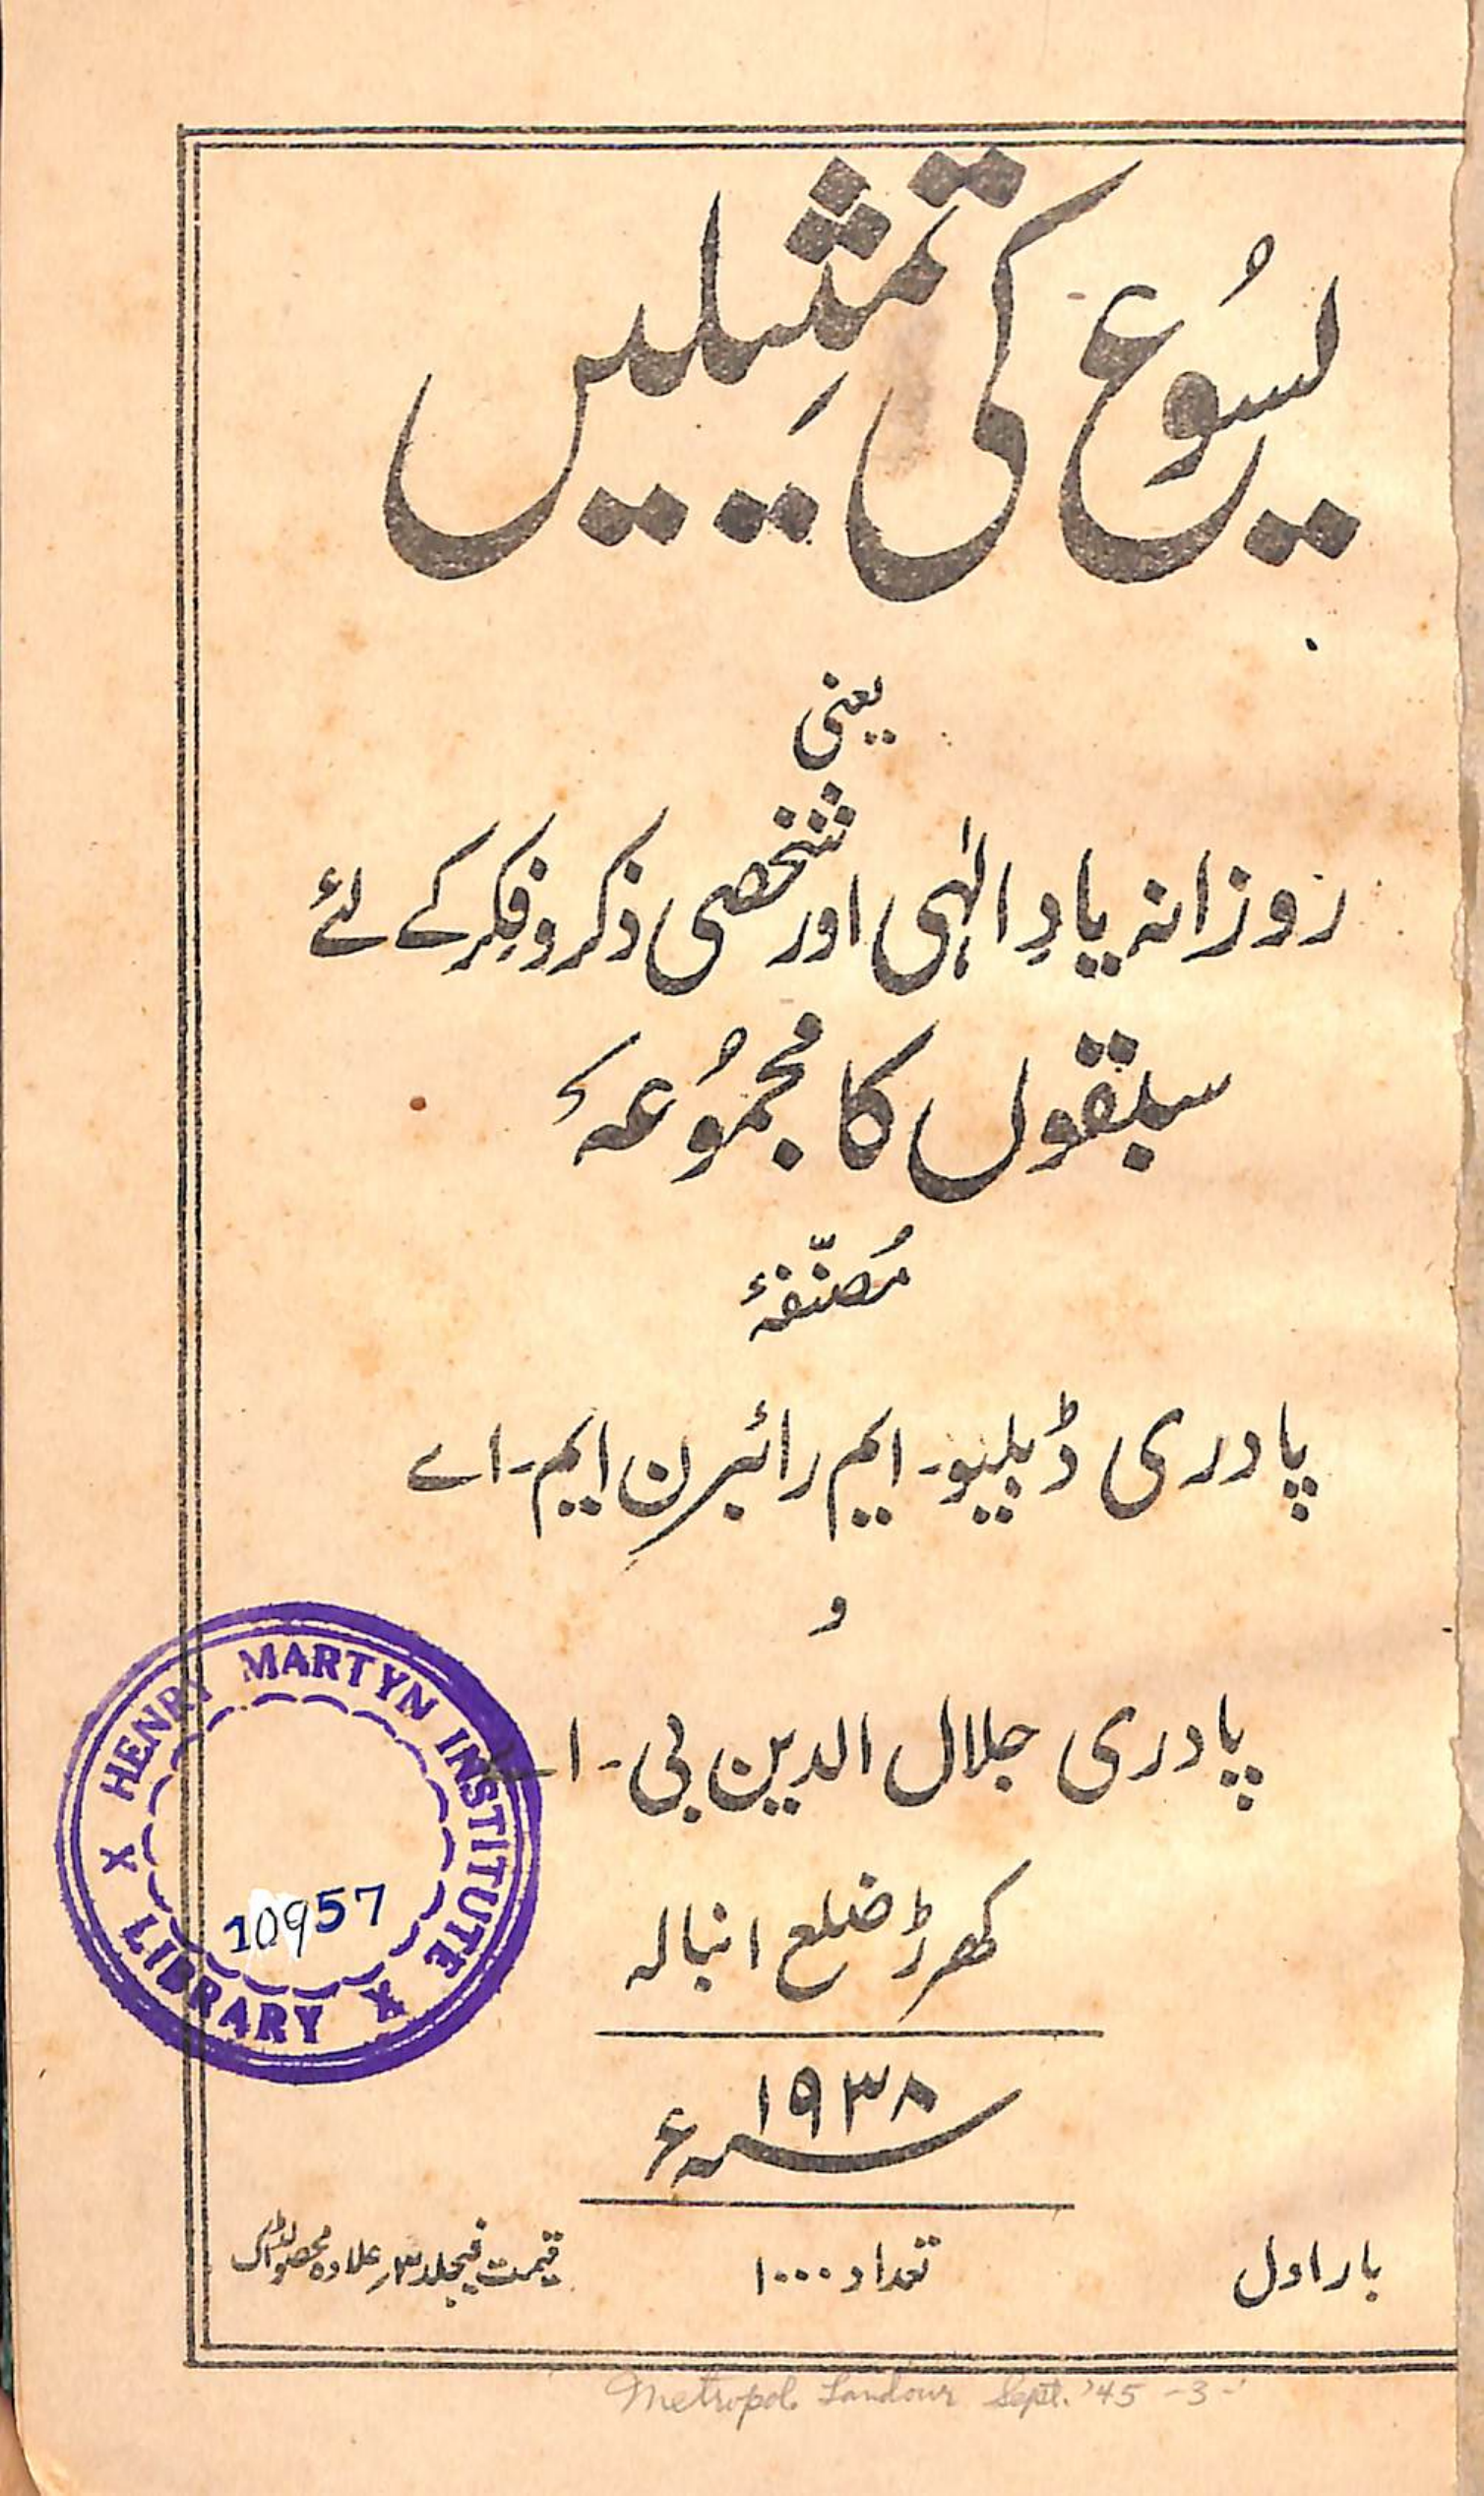 یسُوع کی تمثِیلیں
یعنی
روزانہ یادِ الٰہی اور شخصی ذکر و فِکر کے لئے
سبقوں کا مجمُوعہ
مُصنّفۂ
پادری ڈبلیو۔ ایم رائبرن ایم۔اے
و
پادری جلال الدین بی۔اے
کھرڑ ضلع انبالہ
۱۹۳۸ء
بار اول
تعداد ۱۰۰۰
قیمت فیجلد ۳ر علاوہ محصولڈاک
HENRY MARTYN INSTITUTE
X LIBRARY X
10957
Metropole Landour Sept. '45 -3-